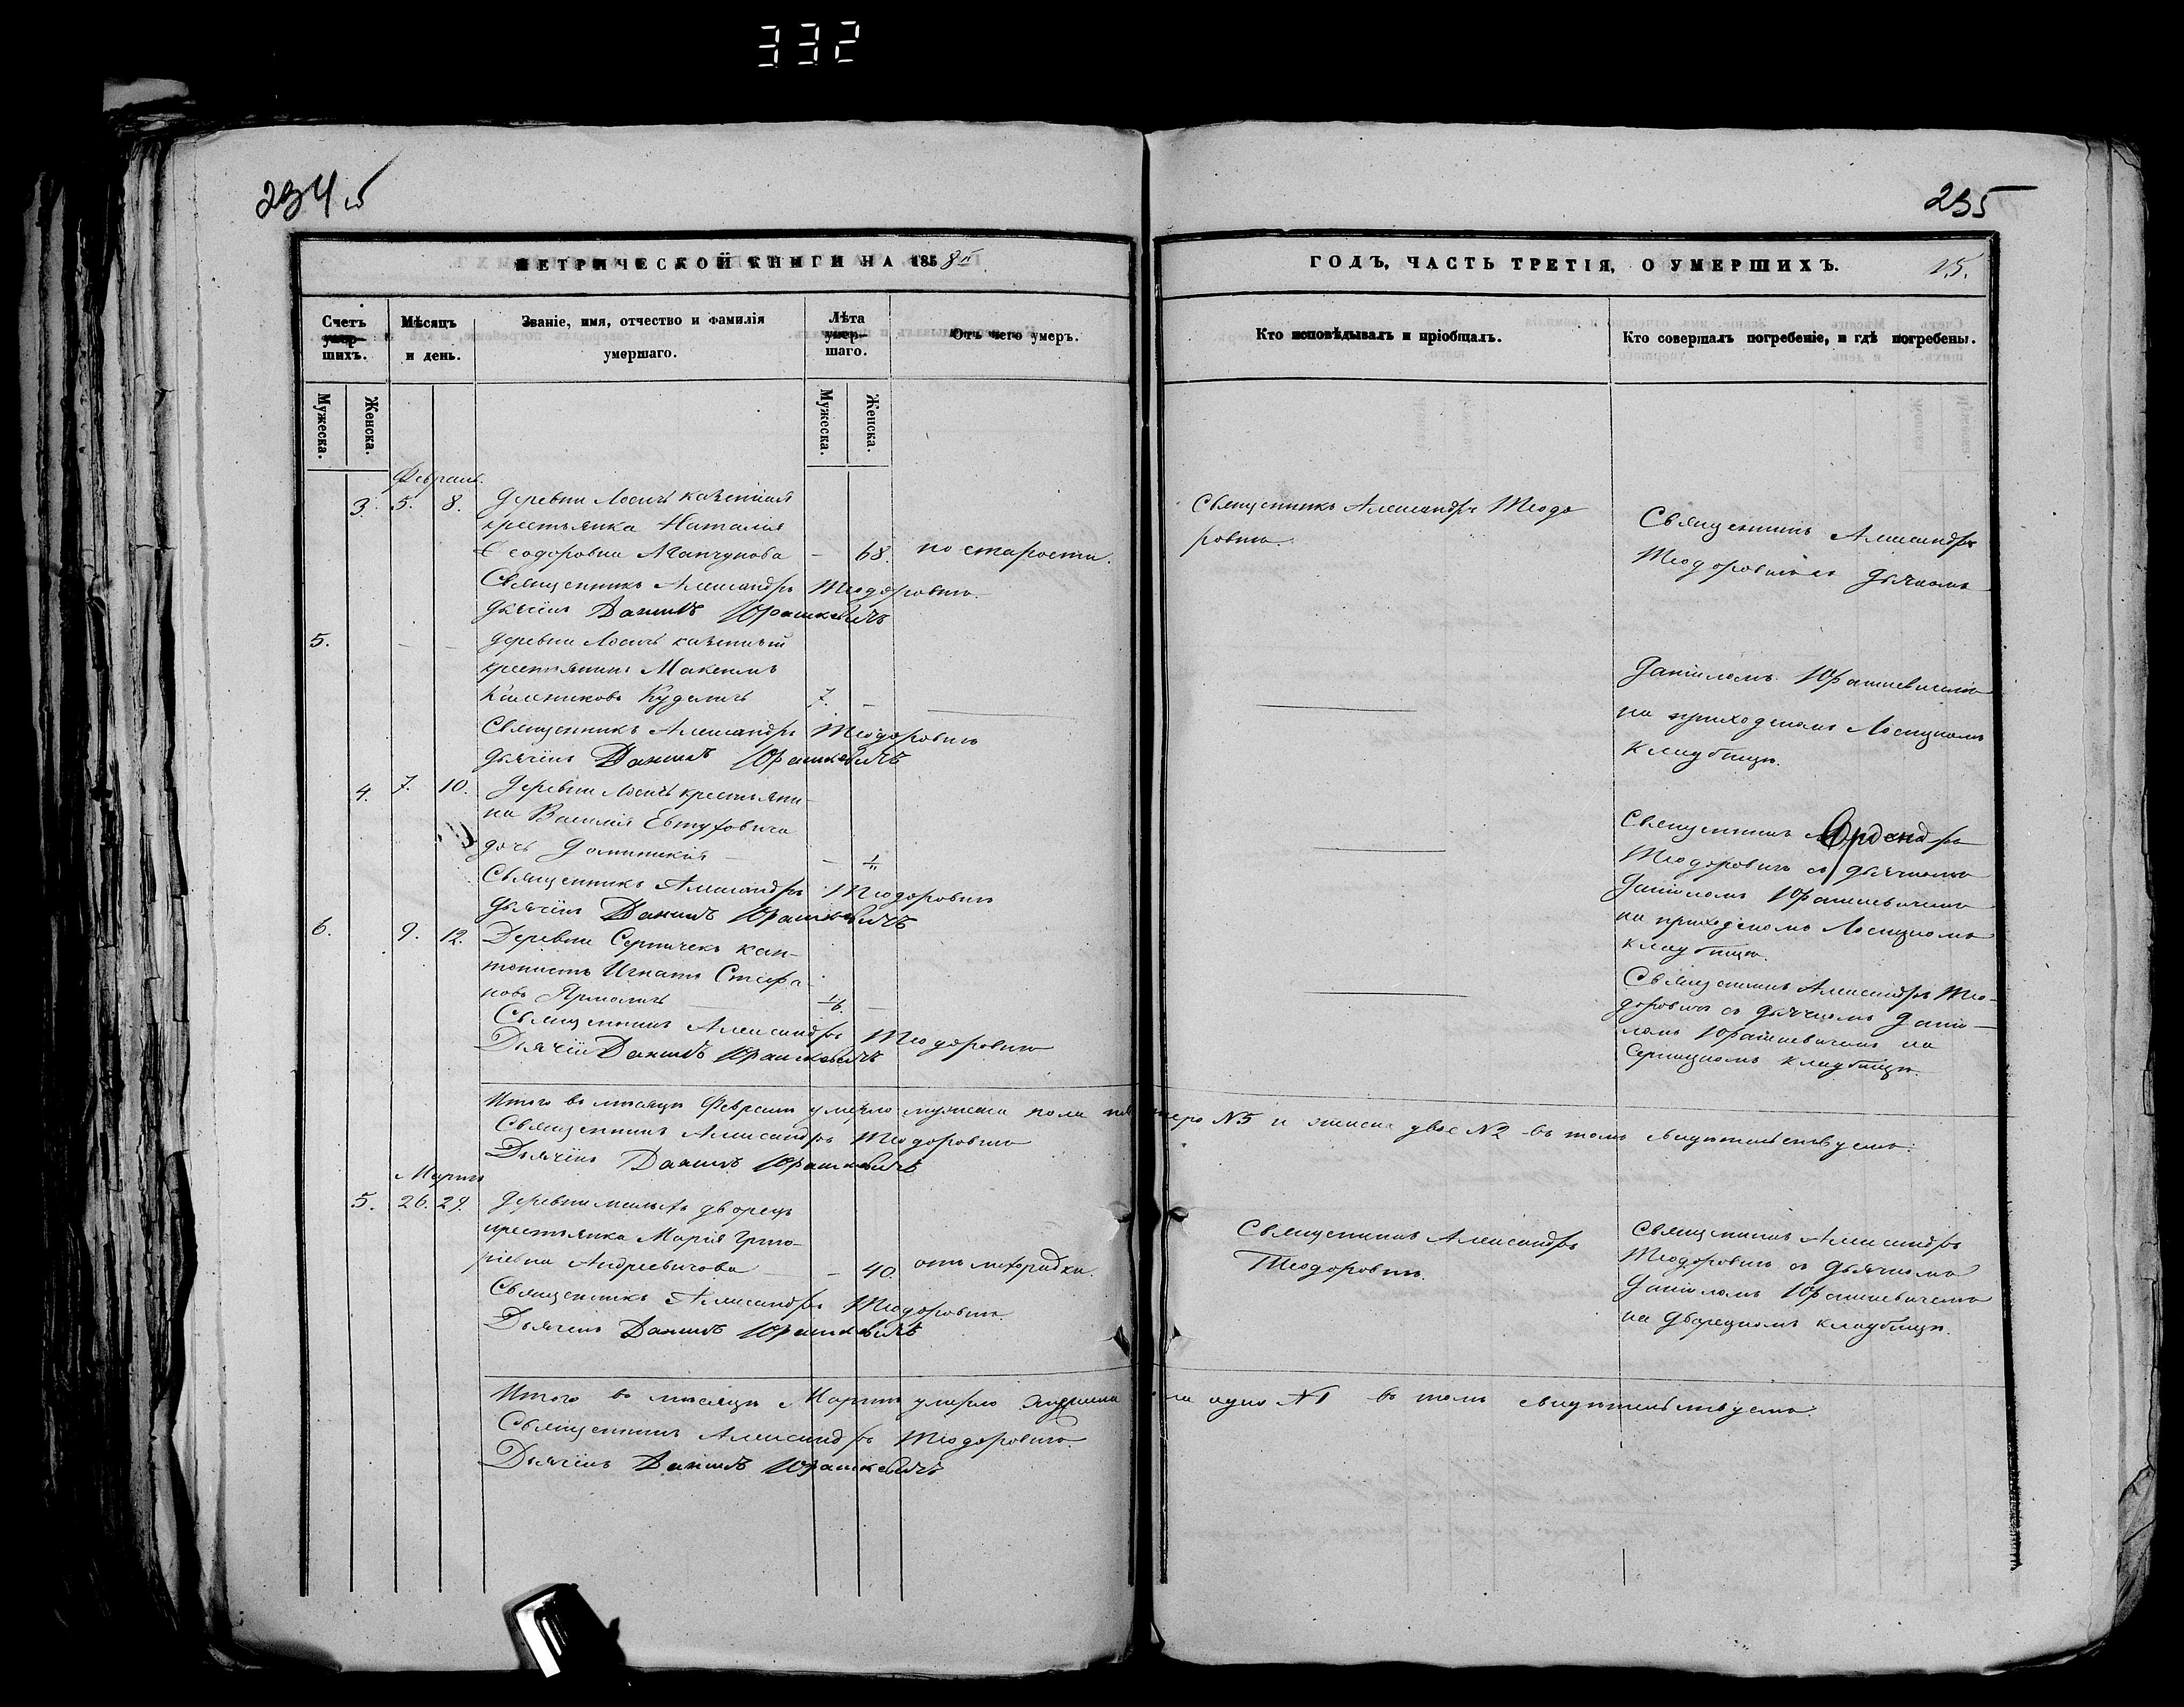 332
234 об
235
МЕТРИЧЕСКОЙ КНИГИ НА 1858й
ГОДЪ, ЧАСТЬ ТРЕТІЯ, О УМЕРШИХЪ.
15.
Счетъ умер- шихъ.
Мѣсяцъ и день.
Званіе, имя, отчество и фамилія умершаго.
Лѣта умер- шаго.
Отъ чего умеръ.
Кто исповѣдывалъ и пріобщалъ.
Кто совершалъ погребеніе, и гдѣ погребены.
Мужеска.
Женска.
Мужеска.
Женска.
Февраль.
3. 5. 8. Деревни Лосичъ казенная
крестьянка Наталія
Ѳеодоровна — 68. по старости.
Священникъ Александръ Теодоровичъ
Дьячекъ Данилъ Юрашкевичъ
Священникъ Александръ Теодо
ровичъ.
Священникъ Александръ
Теодоровичъ съ дьячкомъ
5. — — Деревни Лосичъ казенный
крестьянинъ Максимъ
Куделичъ 7. —
Священникъ Александръ Теодоровичъ
Дьячекъ Данилъ Юрашкевичъ
Даніиломъ Юрашкевичемъ
на приходскомъ Лосицкомъ
кладбищи.
4. 7. 10. Деревни Лосичъ крестьяни-
на Василія Евтуховича
дочь Доминикія — —
Священникъ Александръ Теодоровичъ
Дьячекъ Данилъ Юрашкевичъ
Священникъ
Теодоровичъ съ дьячкомъ
Даніиломъ Юрашкевичемъ
на приходскомъ Лосицкомъ
кладбищи.
6. 9. 12. Деревни Серничекъ кан-
тонистъ Игнатъ Стефа-
новъ Ярмоличъ — —
Священникъ Александръ Теодоровичъ
Дьячекъ Данилъ Юрашкевичъ
Священникъ Александръ Тео-
доровичъ съ дьячкомъ Дани-
ломъ Юрашкевичемъ на
кладбищи.
Итого въ мѣсяцѣ Февралѣ умерло мужеска пола N5 и женска двѣ N2 въ томъ свидѣтельствуемъ:
Священникъ Александръ Теодоровичъ
Дьячекъ Данилъ Юрашкевичъ
Мартъ
5. 26. 29. Деревни дворецъ
крестьянка Марія Григо-
ріевна Андреевичова — — 40. отъ лихорадки.
Священникъ Александръ Теодоровичъ
Дьячекъ Данилъ Юрашкевичъ
Священникъ Александръ
Теодоровичъ.
Священникъ Александръ
Теодоровичъ съ дьячкомъ
Даніиломъ Юрашкевичемъ
на Дворецкомъ кладбищи.
Итого въ мѣсяцѣ Мартѣ умерло одна N1 въ томъ свидѣтельствуемъ:
Священникъ Александръ Теодоровичъ.
Дьячекъ Данилъ Юрашкевичъ